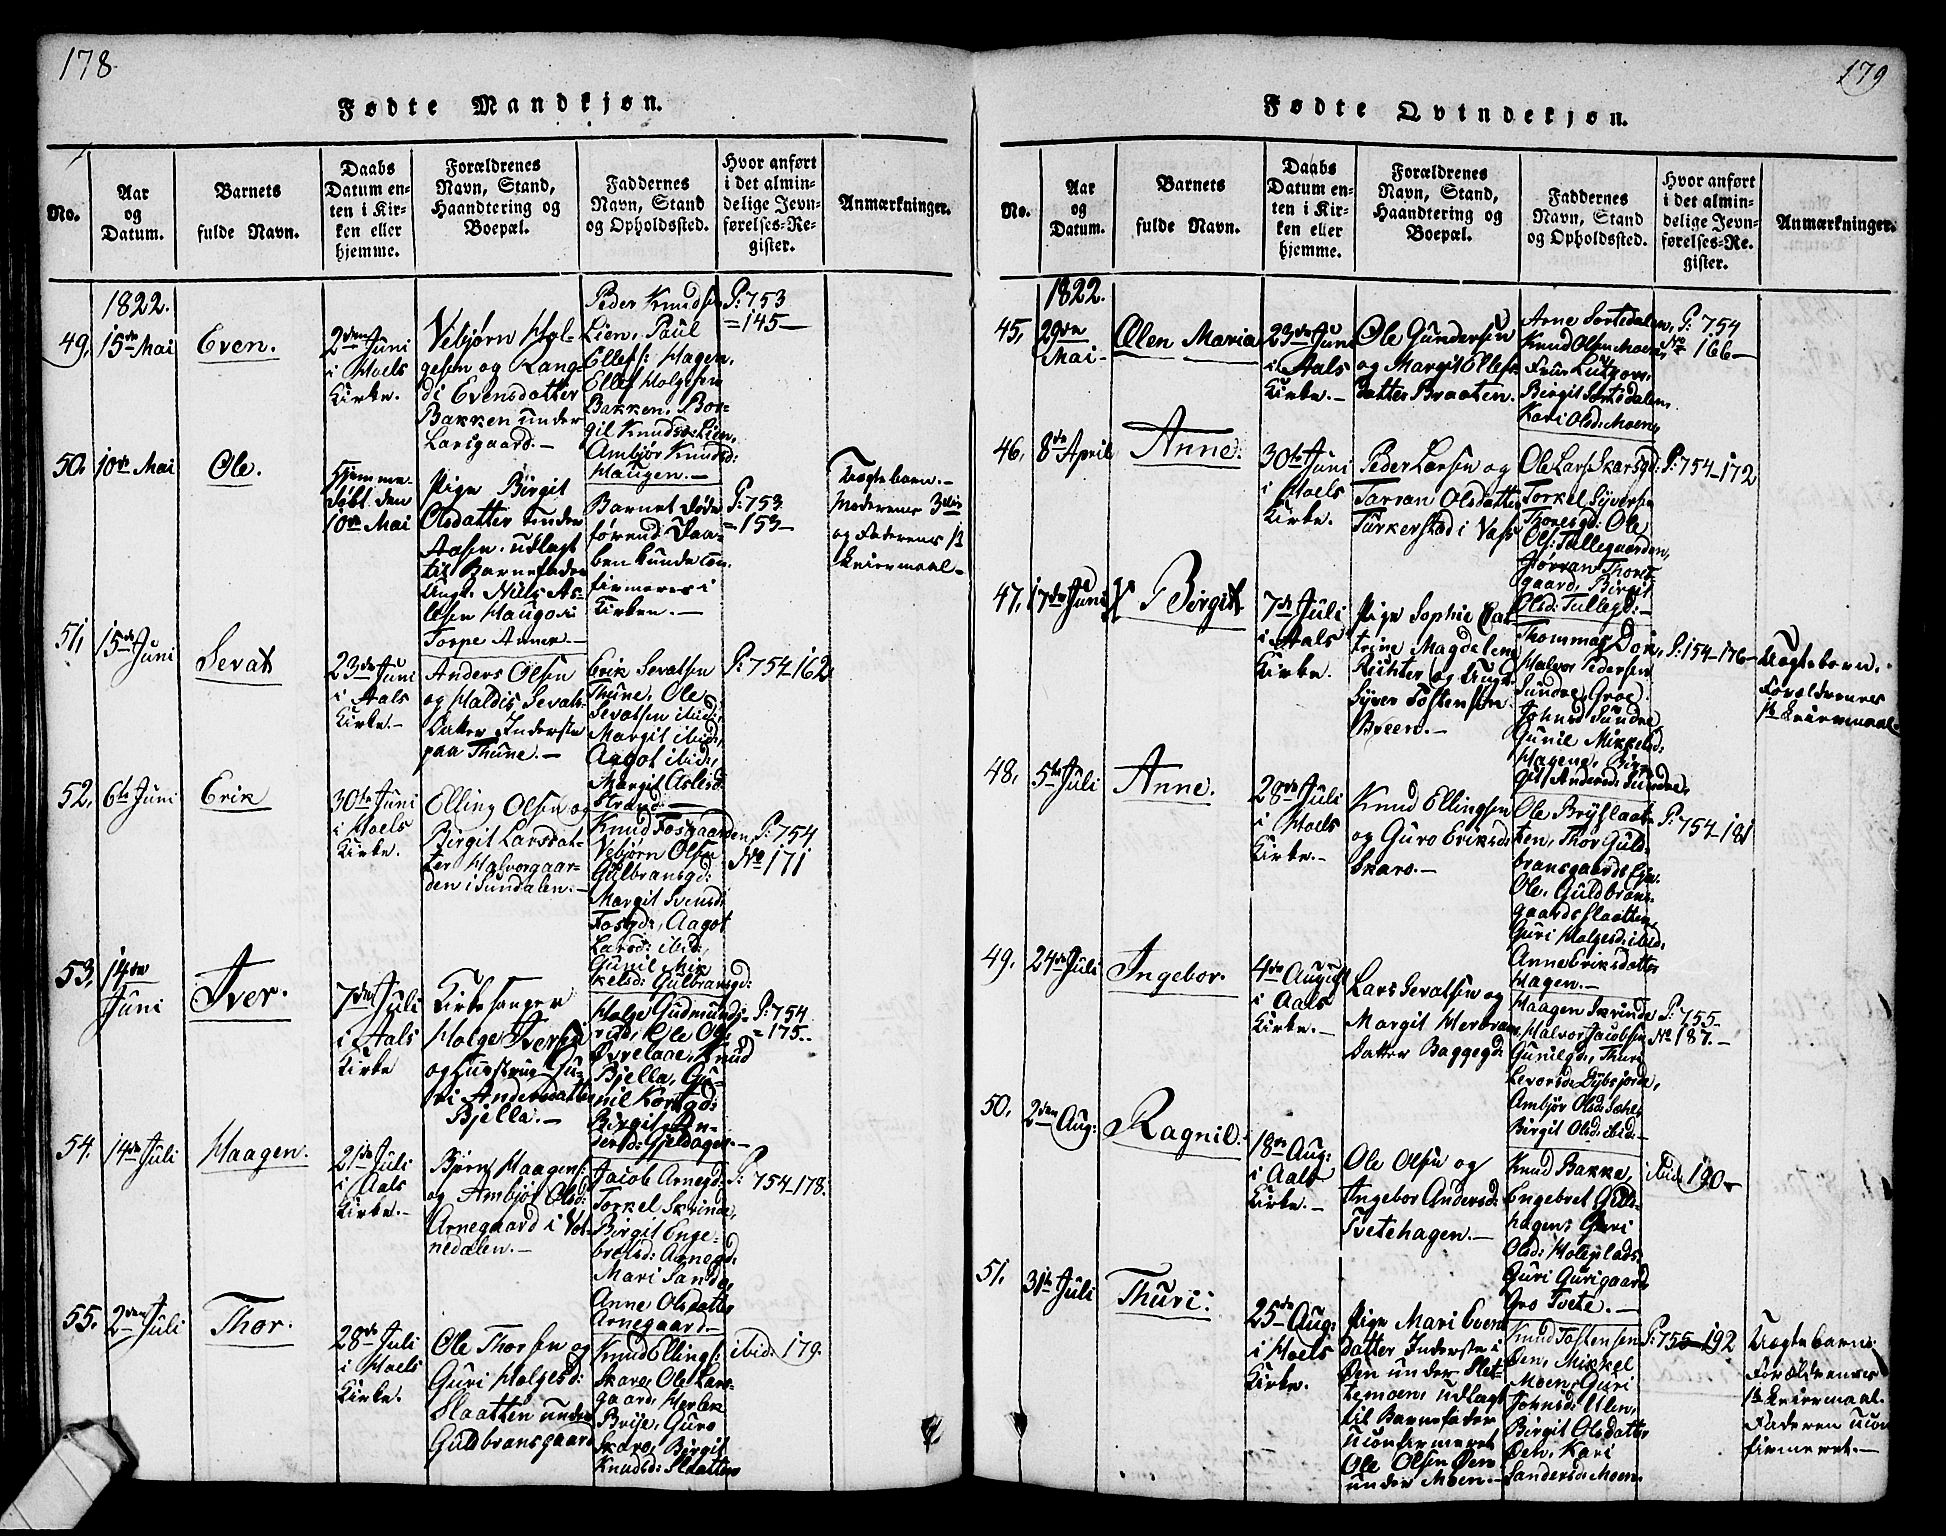 178.
Fødte Mandkjøn.
No.
Aar
og
Datum.
Barnets
fulde Navn.
Daabs
Datum en-
ten i Kir-
ken eller
hjemme.
Forældrenes
Navn, Stand,
Haandtering og
Boepæl.
Faddernes
Navn, Stand
og Opholdssted.
Hvor anført
i det almin-
delige Jevn-
førelses-Re-
gister.
Anmærkninger.
1822.
49.
15de Mai
Even.
2den Juni
i Hoels
Kirke.
Vebjørn Hol-
gesen og Rang-
di Evensdatter
Bakken under
Larsgaard.
Peder Knudsen
Lien, Paul
Ellefs: Hagen,
Ellef Holgesen
Bakken, Bor-
gil Knudsd: Lien,
Ambjør Knudsd:
Haugen.
P: 753
= 145
50.
10de Mai
Ole.
Hjemme-
døbt den
10de Mai
Pige Birgit
Olsdatter under
Aasen, udlagt
til Barnefader
Ungk. Nils As-
lesen Haugo i
Torpe Annex.
Barnet døde
førend Daa-
ben kunde con-
firmeres i
Kirken.
P: 753
= 153
Uægtebarn.
Moderens 3die
og Faderens 1ste
Leiermaal.
51.
15de Juni
Sevat
23de Juni
i Aals
Kirke.
Anders Olsen
og Haldis Sevats-
datter Inderste
paa Thune.
Erik Sevatsen
Thune, Ole
Sevatsen ibid:,
Margit ibid:,
Aagot ibid:,
Margit Aslesd:
Strand.
P: 754 162
52.
6te Juni
Erik
30te Juni
i Hoels
Kirke.
Elling Olsen og
Birgit Larsdat-
ter Halvorgaar-
den i Sundalen.
Knud Fosgaarden,
Vebjørn Olsen
Gulbransgd:
Margit Svensd:
Fosgd:, Aagot
Larsd: ibid:,
Gunil Mik-
kelsd: Gulbransgd:
P: 754
No 171
53.
14de
Juni
Iver.
7de Juli
i Aals
Kirke
Kirkesanger
Holge Iversen
og Hustrue Gu-
ri Andersdatter
Bjella.
Holge Gudmunds-
rud, Ole Ols:
Øvrelaae, Knud
Bjella, Gu-
nil Korsgd:
Birgit An-
dersd: Gjeldagen.
P: 754
= 175.
54.
14de Juli
Haagen.
21de Juli
i Aals
Kirke.
Bjørn Haagens:
og Ambjør Olsd:
Arnegaard i Vot-
nedalen.
Jacob Arnegd:
Torkel Skrinde,
Birgit Enge-
bretsd: Arnegd:
Mari Sando,
Anne Olsdatter
Arnegaard.
P: 754-178.
55.
2den Juli
Thor.
28de Juli
i Hoels
Kirke.
Ole Thorsen og
Guri Holgesd:
Slaatten under
Guldbransgaard
Knud Ellings:
Skaro, Ole Lars-
gaard, Herbek
Brye, Guro
Skaro, Birgit
Knudsd: Slaatten
ibid: 179.
179
Fødte Qvindekjøn.
No.
Aar
og
Datum.
Barnets
fulde Navn.
Daabs
Datum en-
ten i Kir-
ken eller
hjemme.
Forældrenes
Navn, Stand,
Haandtering og
Boepæl.
Faddernes
Navn, Stand
og Opholdssted.
Hvor anført
i det almin-
delige Jevn-
førelses-Re-
gister.
Anmærkninger.
1822.
45.
29de
Mai
Olen Maria
23de Juni
i Aals
Kirke.
Ole Gundersen
og Margit Ellefs-
datter Braaten.
Arne Sortedalen,
Knud Olsen Moen,
Frue Lützow,
Birgit Sortedalen,
Kari Olsd: Moen,
P: 754
No 166
46.
8de April
Anne.
30te Juni
i Hoels
Kirke.
Peder Larsen og
Jørran Olsdatter
Turkerstad i Vats
Ole Lars: Skarsgd:
Torkel Syversen
Thoresgd: Ole
Ols: Tullegaarden,
Jørran Thores-
gaard, Birgit
Olsd: Tullegd:
P: 754-172
47.
17de Juni
Birgit
7de Juli
i Aals
Kirke.
Pige Sophie Ca-
trine Magdelene
Richter og Ungk:
Syver Tostensen
Breen.
Thommas Dok,
Halvor Pedersen
Sundre, Groe
Johnsd: Sundre,
Gunil Mikkelsd:
Hagene, Bir-
git Andersd: Sundre,
P: 154-176
Uægtebarn.
Forældrenes
1ste Leiermaal
48.
5te Juli
Anne.
28de Juli
i Hoels
Kirke.
Knud Ellingsen
og Guro Eriksd:
Skaro.
Ole Bryslaat-
ten, Thor Guld-
bransgaards Eye,
Ole Guldbrans-
gaards Slaatten,
Guri Holgesd: ibid:
Anne Eriksdatter
Hagen.
P: 754-181
49.
24de Juli
Ingebor.
4de August
i Aals
Kirke.
Lars Sevatsen og
Margit Herbrans-
datter Baggegd:
Haagen Skrinde,
Halvor Jacobsen
Gunilgd:, Thuri
Levorsd: Dybsjord,
Ambjør Olsd: Sæhl,
Birgit Olsd: ibid:
P: 755
No 187.
50.
2den Aug:
Ragnil.
18de Aug:
i Aals
Kirke.
Ole Olsen og
Ingebor Andersd:
Tvetehagen.
Knud Bakke,
Engebret Guld-
hagen, Guri
Olsd: Holeplads,
Guri Gurigaard,
Gro Tvete.
ibid: 190
51.
31te Juli
Thuri.
25de Aug:
i Hoels
Kirke.
Pige Mari Evens-
datter Inderste i
Øen under Slet-
temoen, udlagt
til Barnefader
uconfirmeret
Ole Olsen Øen
under Moen.
Knud Tostensen
Øen, Mikkel
Moen, Guri
Johnsd: Ulen,
Birgit Olsdatter
Øen, Kari
Sandersd: Moen.
P: 755-192
Uægtebarn
Forældrenes
1ste Leiermaal.
Faderen ucon-
firmeret.